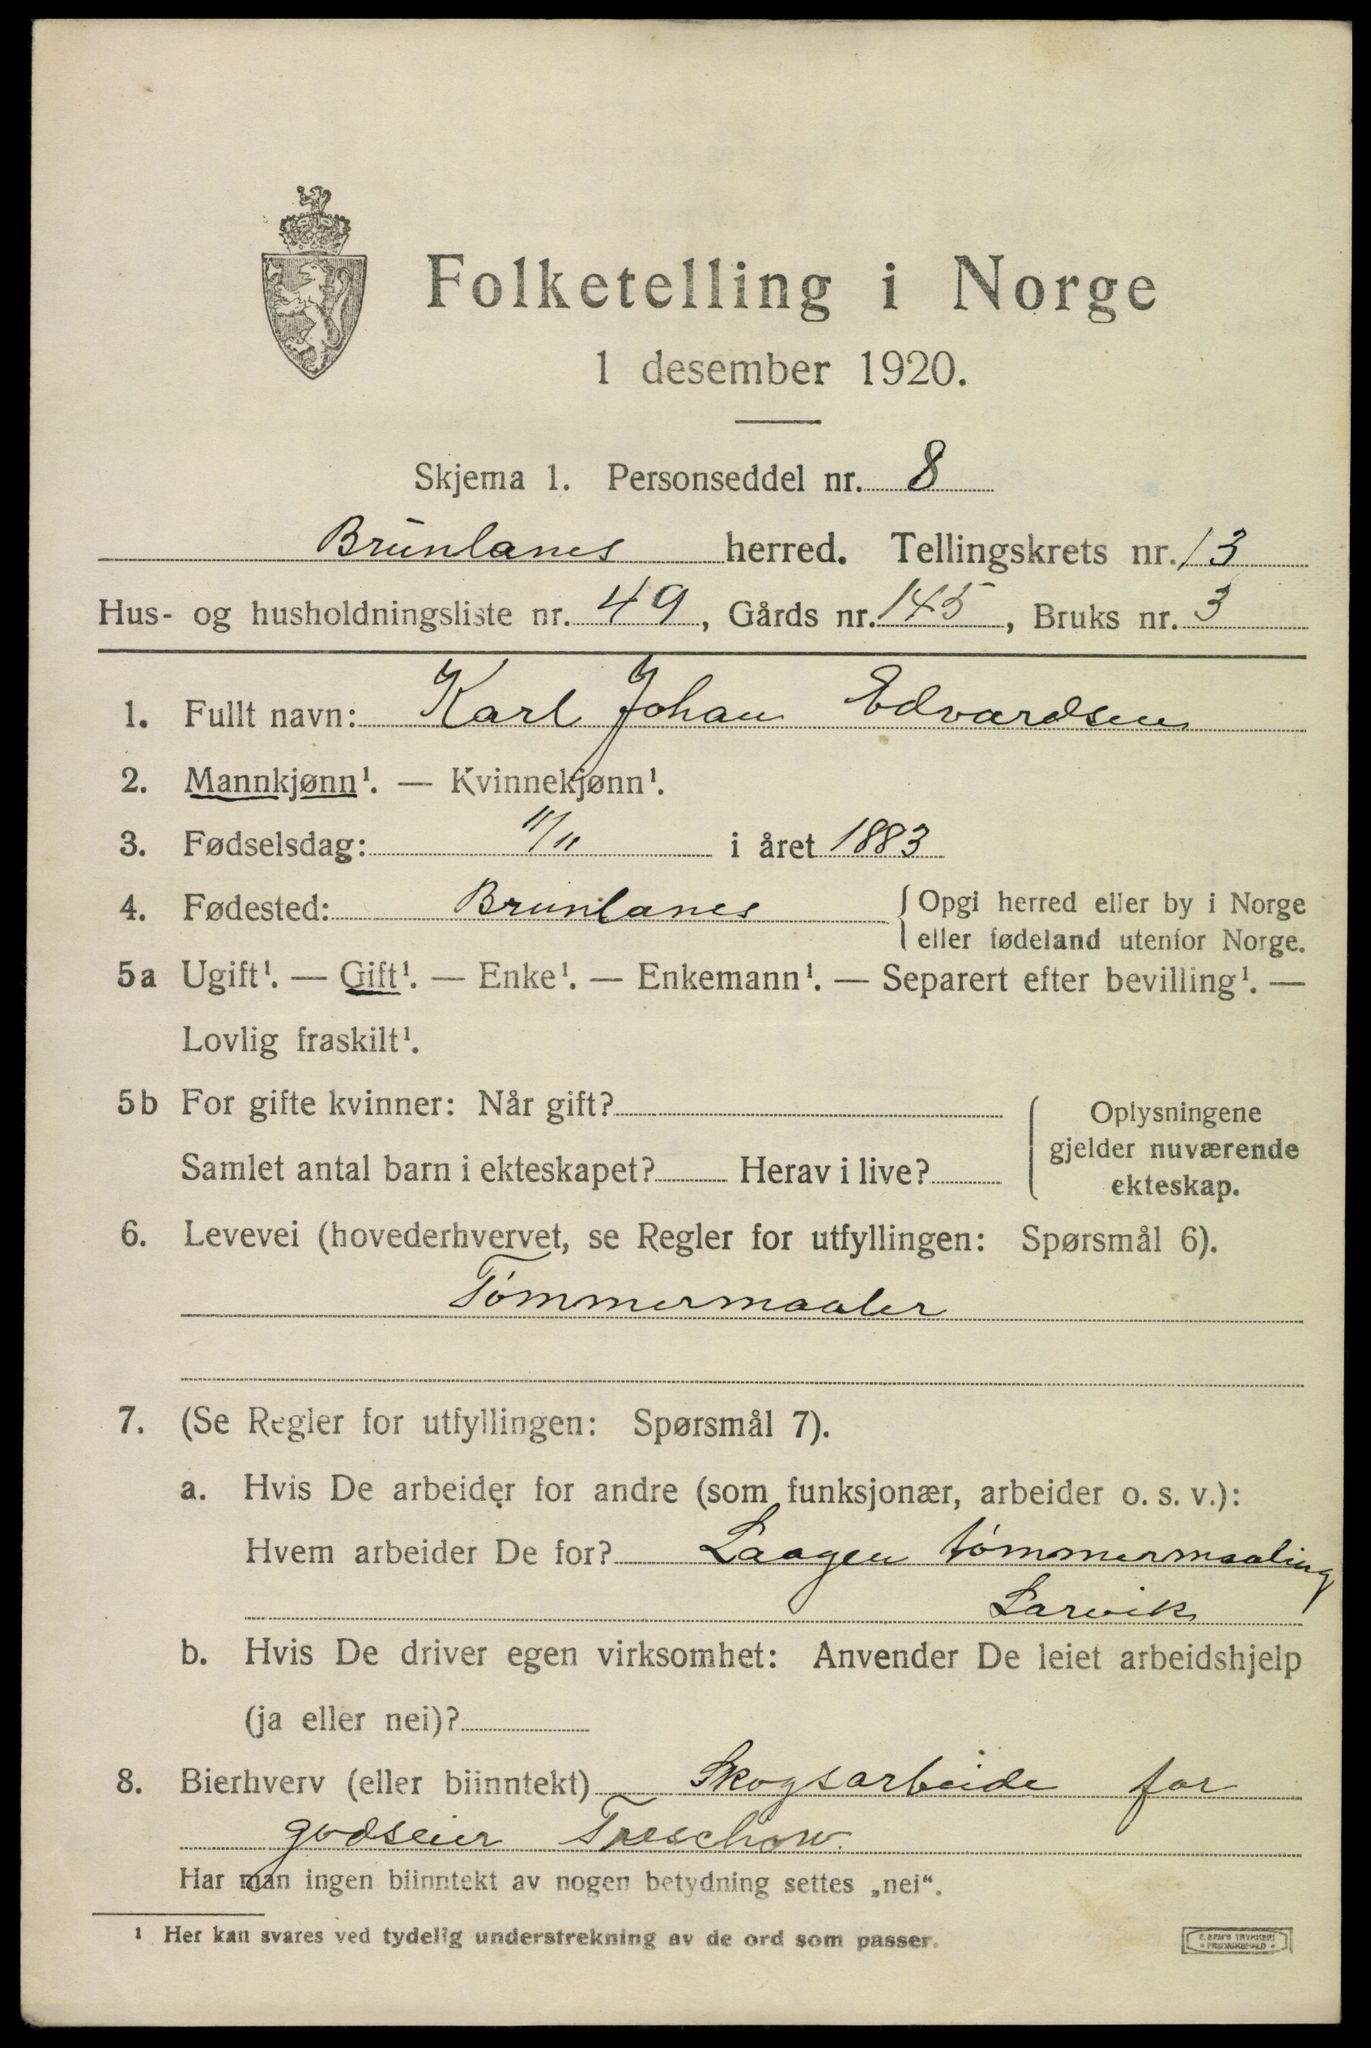 Folketelling i Norge
1 desember 1920.
Skjema 1. Personseddel nr. 8
Brunlanes herred. Tellingskrets nr. 13
Hus- og husholdningsliste nr. 49, Gårds nr. 145, Bruks nr. 3
1. Fullt navn: Karl Johan Edvardsen
2. Mannkjønn¹. — Kvinnekjønn¹.
3. Fødselsdag: 11/11 i året 1883
4. Fødested: Brunlanes { Opgi herred eller by i Norge
eller fødeland utenfor Norge.
5a Ugift¹. — Gift¹. — Enke¹. — Enkemann¹. — Separert efter bevilling¹. —
Lovlig fraskilt¹.
5b For gifte kvinner: Når gift?
Samlet antal barn i ekteskapet? Herav i live?
Oplysningene
gjelder nuværende
ekteskap.
6. Levevei (hovederhvervet, se Regler for utfyllingen: Spørsmål 6).
Tømmermaaler
7. (Se Regler for utfyllingen: Spørsmål 7).
a. Hvis De arbeider for andre (som funksjonær, arbeider o. s. v.):
Hvem arbeider De for? Laagen tømmermaaling
Larvik
b. Hvis De driver egen virksomhet: Anvender De leiet arbeidshjelp
(ja eller nei)?
8. Bierhverv (eller biinntekt) Skogsarbeide for
godseier Treschow.
Har man ingen biinntekt av nogen betydning settes „nei“.
¹ Her kan svares ved tydelig understrekning av de ord som passer.